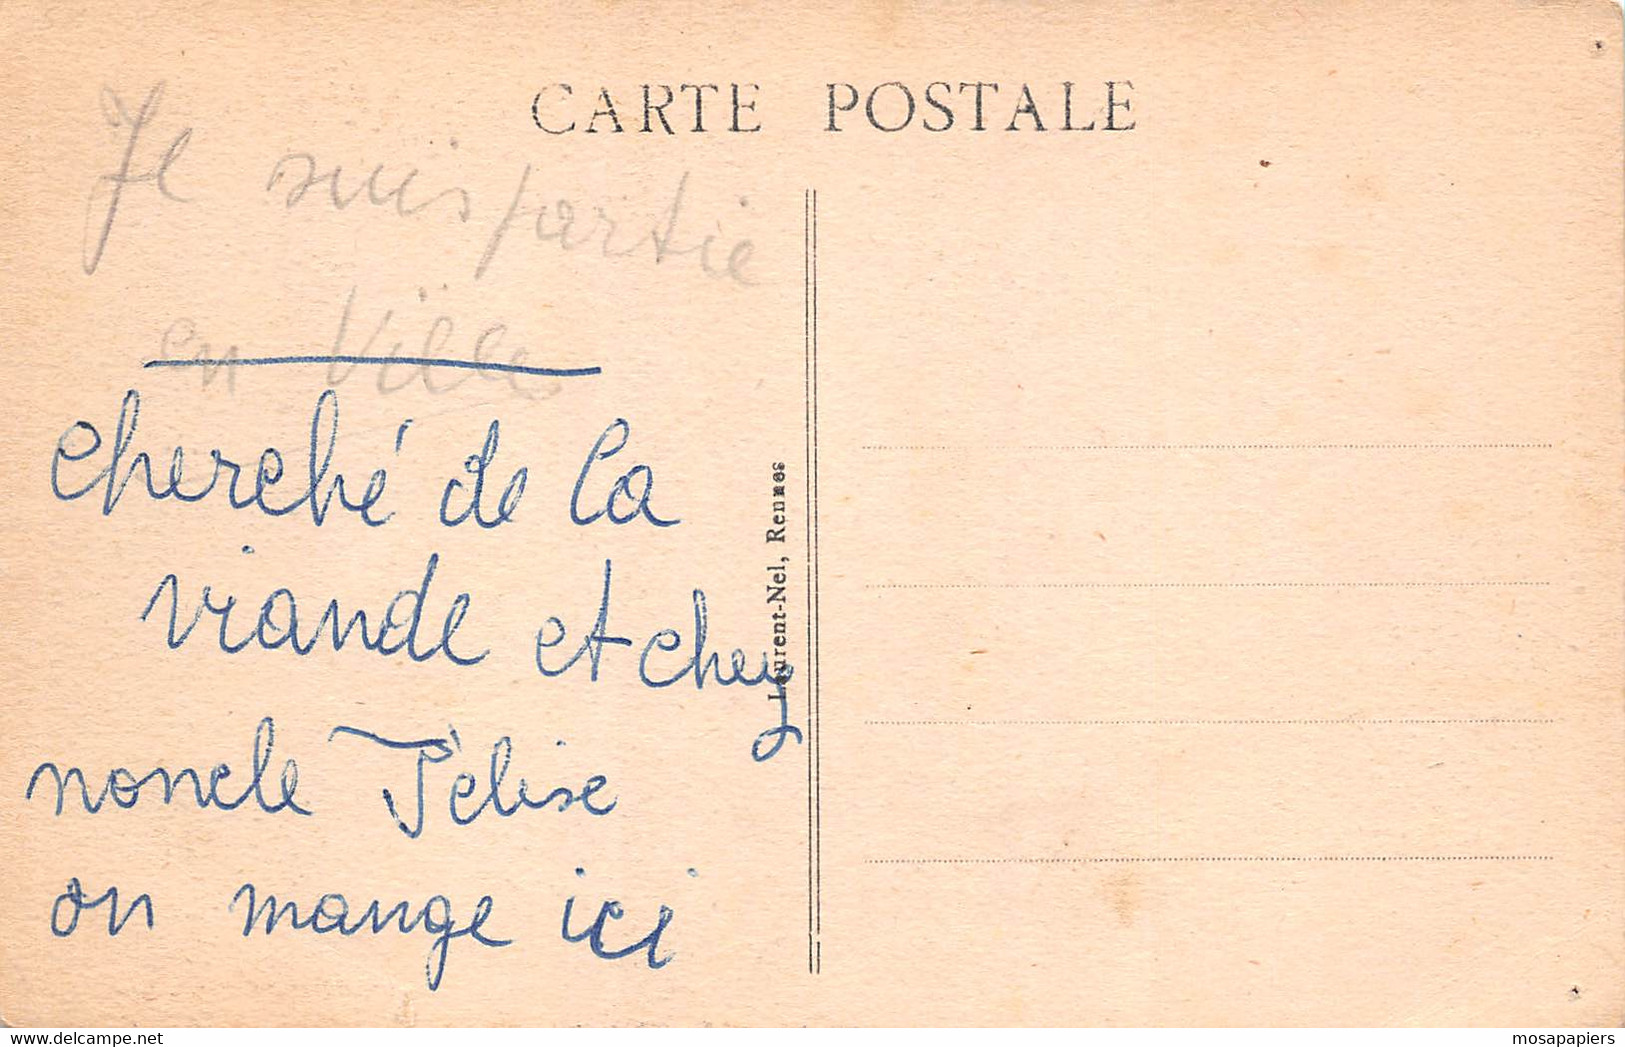 CARTE POSTALE
Je suis partie
en Ville
cherché de la
viande et chez
noncle Félise
on mange ici
Laurent-Nel, Rennes
mosapapiers